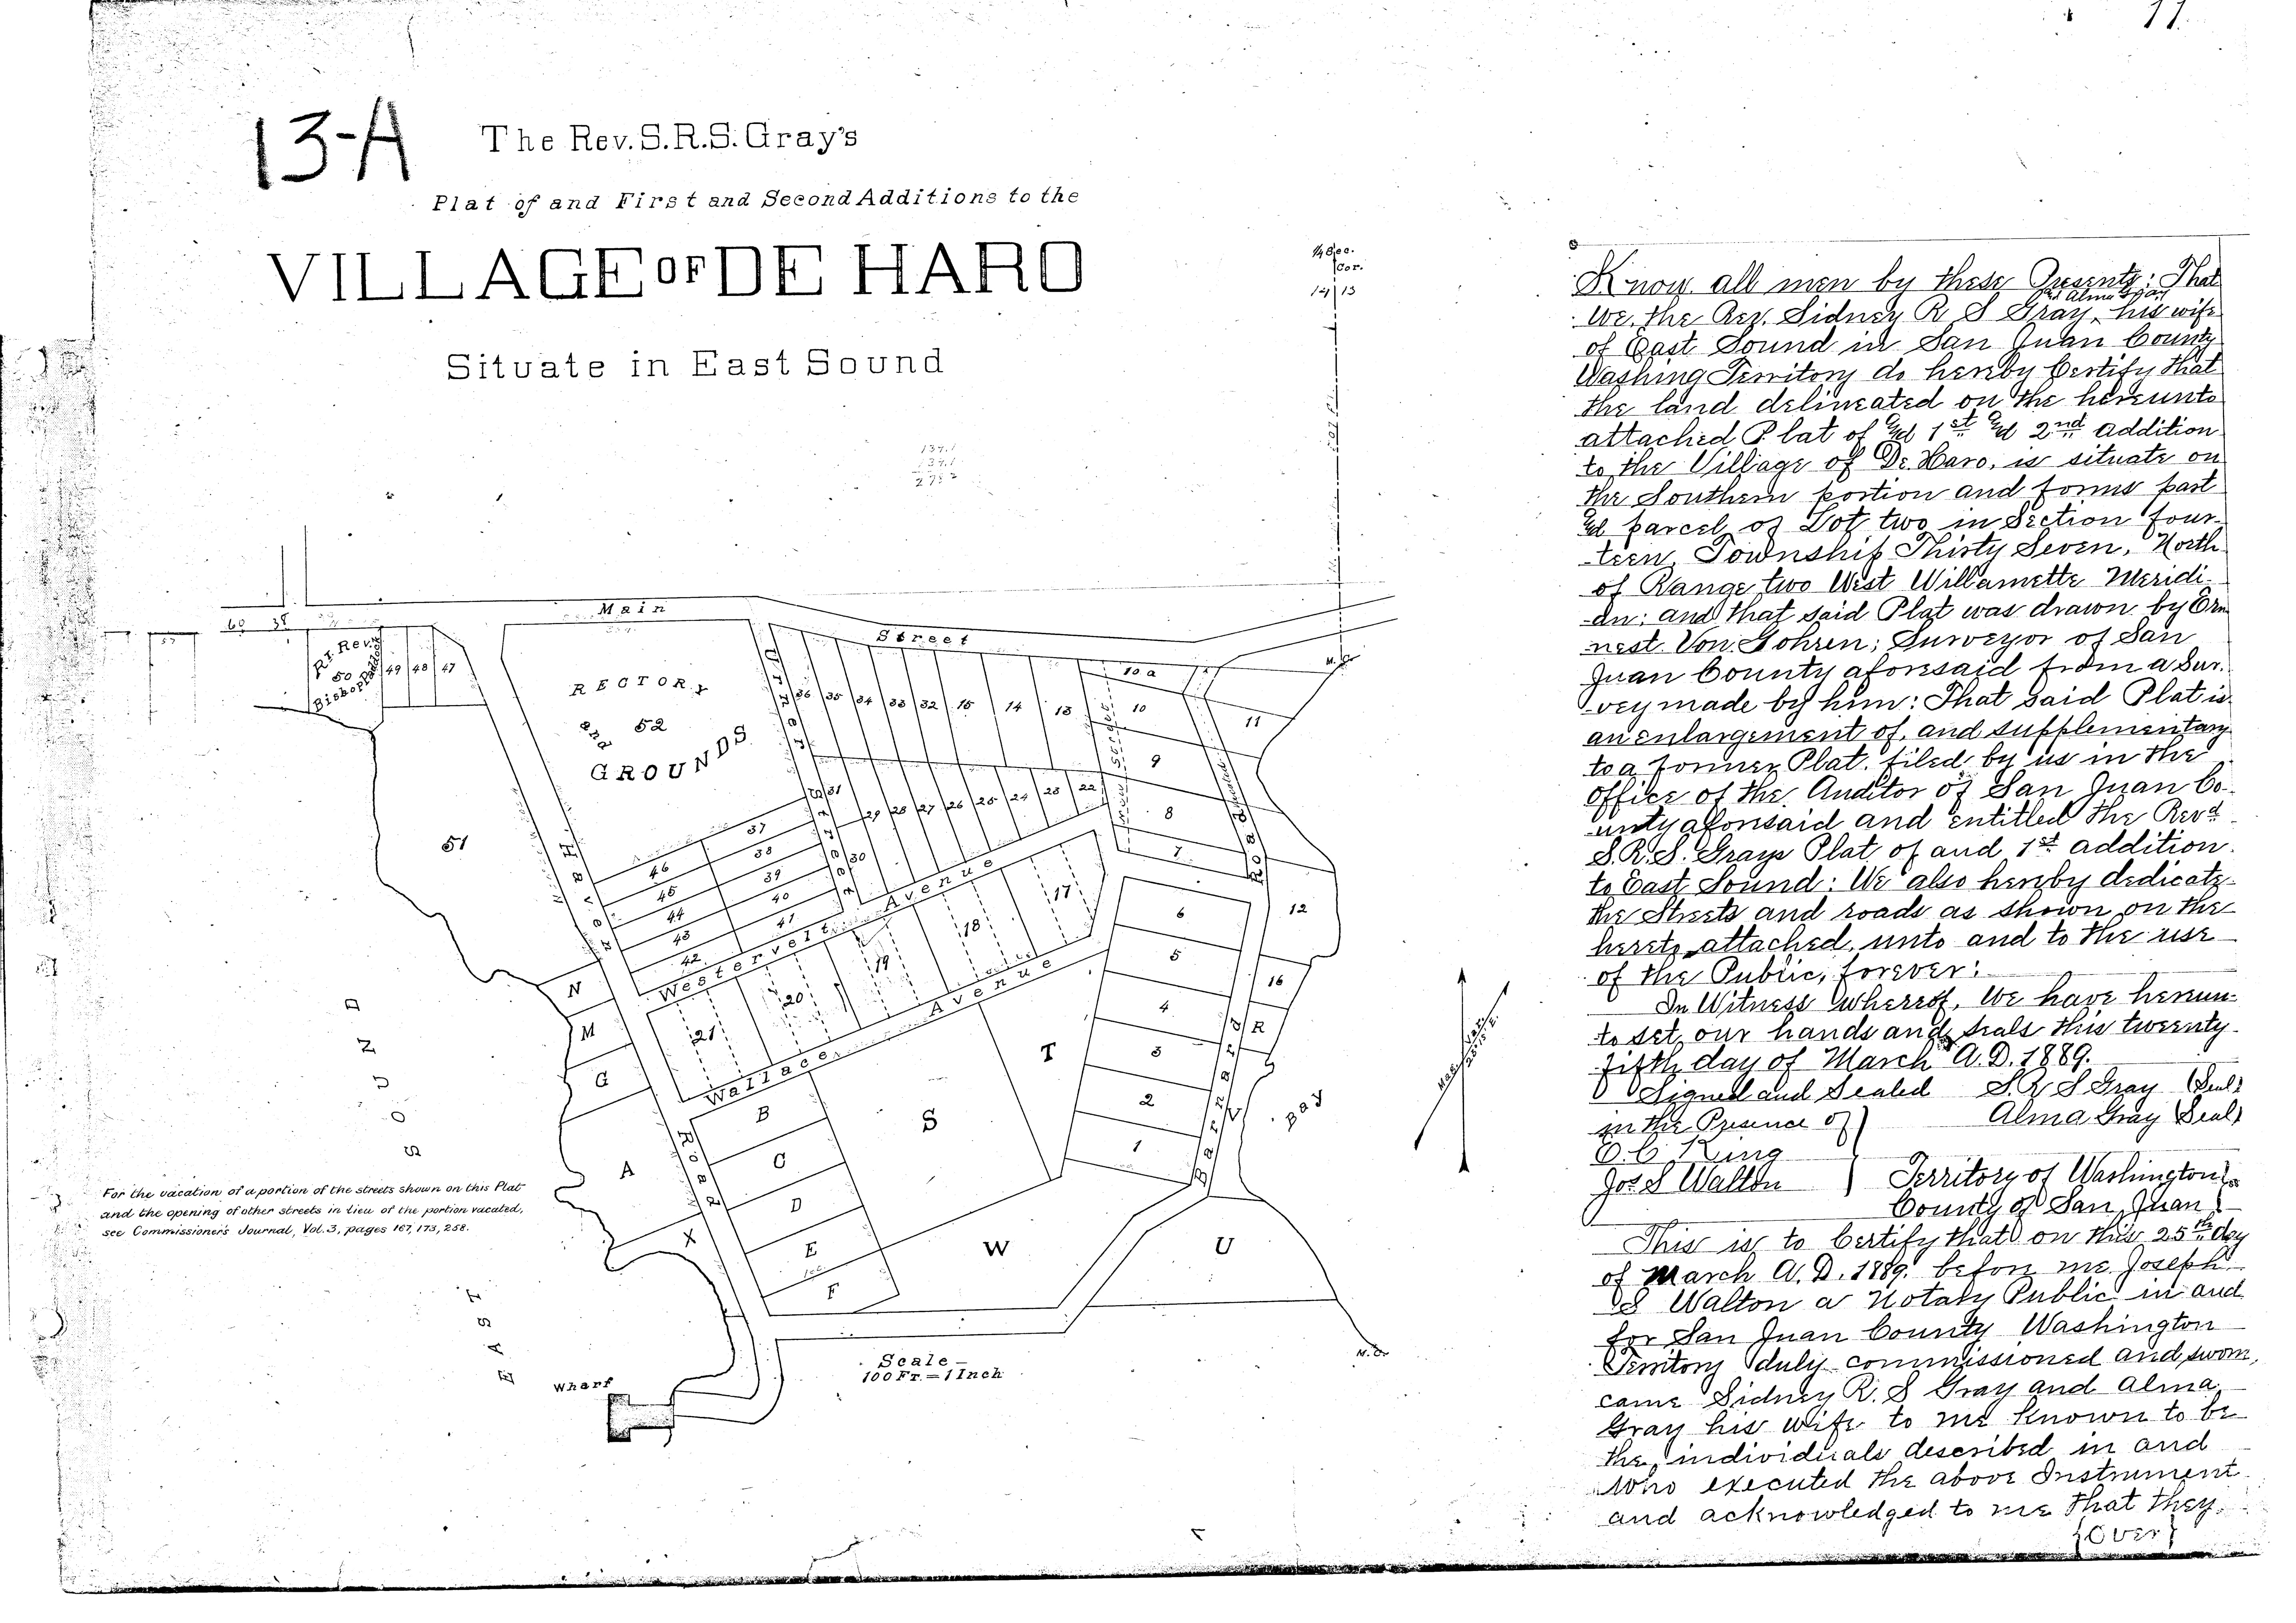 11.
13-A
The Rev. S.R.S. Gray's
Plat of and First and Second Additions to the
VILLAGE OF DE HARO
Situate in East Sound
¼ Sec.
Cor.
14|13
Main
Street
Rt. Rev.
50
Bishop
49
48
47
RECTORY
52
GROUNDS
51
36
35
34
33
32
15
14
13
10a
10
11
9
8
7
31
29
28
27
26
25
24
23
22
37
38
39
40
41
46
45
44
43
42
30
Westervelt Avenue
17
18
19
20
21
Wallace Avenue
6
5
4
3
2
1
12
16
R
N
M
G
A
X
B
C
D
E
F
S
T
W
U
Bay
EAST
SOUND
Wharf
Scale
100 Ft. = 1 Inch
M.C.
For the vacation of a portion of the streets shown on this Plat
and the opening of other streets in lieu of the portion vacated,
see Commissioner's Journal, Vol. 3, pages 167, 173, 258.
Know all men by these Presents: That
and Alma Gray
We, the Rev. Sidney R S Gray, his wife
of East Sound in San Juan County
Washing Territory do hereby Certify that
the land delineated on the hereunto
attached Plat of and 1st and 2nd addition
to the Village of De Haro, is situate on
the Southern portion and forms part
and parcel of Lot two in Section four-
teen Township Thirty Seven, North
of Range two West Willamette Meridi-
an; and that said Plat was drawn by Er
nest Von Gohren; Surveyor of San
Juan County aforesaid from a Sur-
vey made by him: That said Plat is
an enlargement of, and supplementary
to a former Plat, filed by us in the
office of the Auditor of San Juan Co-
unty aforesaid and entitled the Revd
S.R.S. Grays Plat of and 1st addition
to East Sound: We also hereby dedicate
the Streets and roads as shown on the
hereto attached, unto and to the use
of the Public, forever:
In Witness whereof, We have hereun-
to set our hands and seals this twenty-
fifth day of March A.D. 1889.
Signed and Sealed S. R S Gray (Seal)
in the Presence of Alma Gray (Seal)
O.C. King
Jos S Walton } Territory of Washington
County of San Juan
This is to Certify that on this 25th day
of March A.D. 1889. before me Joseph
S Walton a Notary Public in and
for San Juan County Washington
Territory duly commissioned and sworn,
came Sidney R. S Gray and Alma
Gray his wife to me known to be
the individuals described in and
who executed the above Instrument
and acknowledged to me that they
{Over}